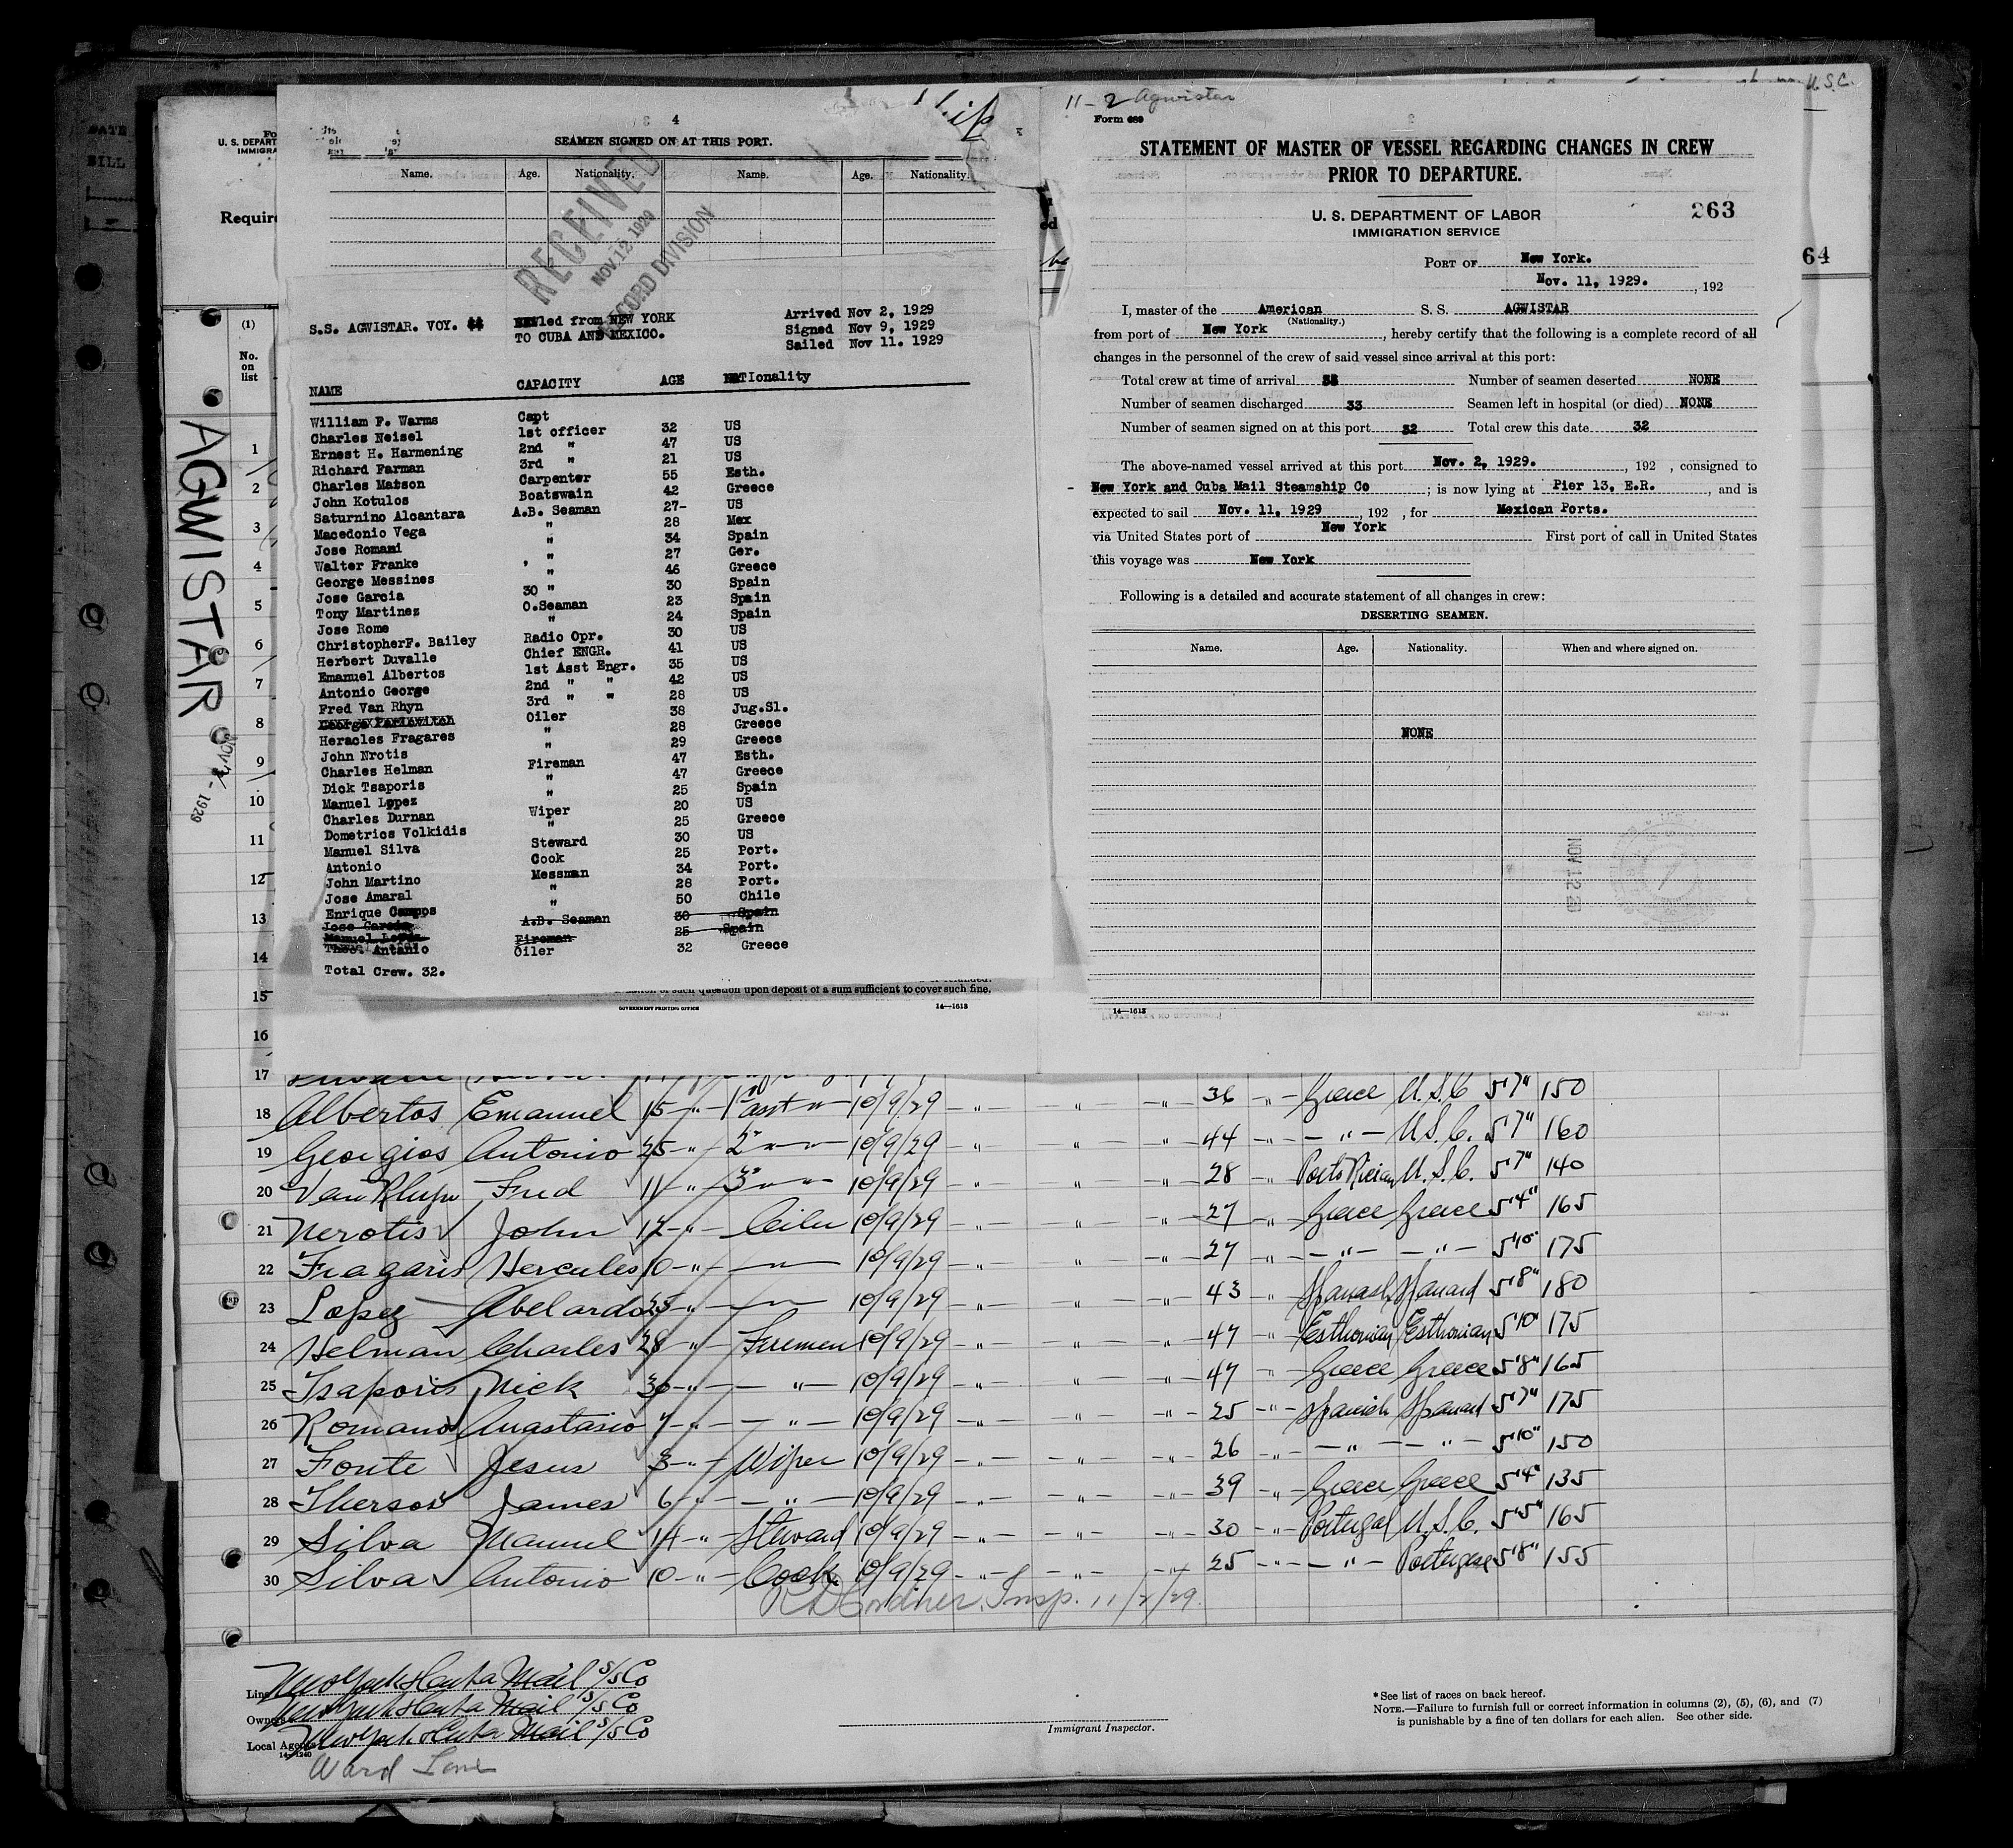 4
SEAMEN SIGNED ON AT THIS PORT.
Name. Age. Nationality. Name. Age. Nationality.
RECEIVED
NOV. 12. 1929
RECORD DIVISION
S.S. AGWISTAR. VOY. 44
Sailed from NEW YORK
TO CUBA AND MEXICO.
Arrived Nov 2, 1929
Signed Nov 9, 1929
Sailed Nov 11. 1929
NAME CAPACITY AGE NATIonality
William F. Warms Capt 32 US
Charles Neisel 1st officer 47 US
Ernest H. Harmening 2nd " 21 US
Richard Farman 3rd " 55 Esth.
Charles Matson Carpenter 42 Greece
John Kotulos Boatswain 27- US
Saturnino Alcantara A.B. Seaman 28 Mex
Macedonio Vega " 34 Spain
Jose Romani " 27 Ger.
Walter Franke " 46 Greece
George Messines " 30 Spain
Jose Garcia 30 " 23 Spain
Tony Martinez O.Seaman 24 Spain
Jose Rome " 30 US
ChristopherF. Bailey Radio Opr. 41 US
Herbert Duvalle Chief ENGR. 35 US
Emanuel Albertos 1st Asst Engr. 42 US
Antonio George 2nd " " 28 US
Fred Van Rhyn 3rd " " 38 Jug.Sl.
Oiler 28 Greece
Heracles Fragares " 29 Greece
John Nrotis " 47 Esth.
Charles Helman Fireman 47 Greece
Dick Tsaporis " 25 Spain
Manuel Lopez " 20 US
Charles Durnan Wiper 25 Greece
Dometrios Volkidis " 30 US
Manuel Silva Steward 25 Port.
Antonio Cook 34 Port.
John Martino Messman 28 Port.
Jose Amaral " 50 Chile
Enrique Campos "
Jose Garcia A.B. Seaman 30 Spain
Manuel Lopez Fireman 25 Spain
Theo. Antanio Oiler 32 Greece
Total Crew. 32.
of such question upon deposit of a sum sufficient to cover such fine.
GOVERNMENT PRINTING OFFICE 14—1613
11-2 Agwistar
U.S.C.
Form 689
STATEMENT OF MASTER OF VESSEL REGARDING CHANGES IN CREW
PRIOR TO DEPARTURE.
U. S. DEPARTMENT OF LABOR
IMMIGRATION SERVICE
263
PORT OF New York.
Nov. 11, 1929. , 192
I, master of the American S. S. AGWISTAR
(Nationality.)
from port of New York , hereby certify that the following is a complete record of all
changes in the personnel of the crew of said vessel since arrival at this port:
Total crew at time of arrival 33 Number of seamen deserted NONE
Number of seamen discharged 33 Seamen left in hospital (or died) NONE
Number of seamen signed on at this port 32 Total crew this date 32
The above-named vessel arrived at this port Nov. 2, 1929. , 192 , consigned to
New York and Cuba Mail Steamship Co ; is now lying at Pier 13, E.R. , and is
expected to sail Nov. 11, 1929 , 192 , for Mexican Ports.
via United States port of New York First port of call in United States
this voyage was New York
Following is a detailed and accurate statement of all changes in crew:
DESERTING SEAMEN.
Name. Age. Nationality. When and where signed on.
NONE
NOV 12 29
14—1613
64
U. S. DEPART
IMMIGRA
Require
(1)
No.
on
list
AGWISTAR
NOV 2 - 1929
1
2
3
4
5
6
7
8
9
10
11
12
13
14
15
16
17
18 Albertos Emanuel 15 " 1st asst " 10/9/29 " " " 36 " Greece U.S.C. 5'7" 150
19 Georgios Antonio 25 " 2" " " 10/9/29 " " " 44 " " U.S.C. 5'7" 160
20 Van Rhyn Fred 11 " 3" " " 10/9/29 " " " 28 " Porto Rican U.S.C. 5'7" 140
21 Nerotis John 12 " Oiler 10/9/29 " " " 27 " Greece Greece 5'4" 165
22 Fragaris Hercules 10 " " 10/9/29 " 27 " " " 5'10" 175
23 Lopez Abelardo 25 " " 10/9/29 " " " 43 " Spanish Spaniard 5'8" 180
24 Helman Charles 28 " Firemen 10/9/29 " " " 47 " Esthonian Esthonian 5'10" 175
25 Tsaporis Nick 30 " " 10/9/29 " " " 47 " Greece Greece 5'8" 165
26 Romanos Anastasio 7 " " 10/9/29 " " " 25 " Spanish Spaniard 5'7" 175
27 Fonte Jesus 3 " Wiper 10/9/29 " " " 26 " " " 5'10" 150
28 Therson James 6 " " 10/9/29 " " " 39 " Greece Greece 5'4" 135
29 Silva Manuel 14 " Steward 10/9/29 " " " 30 " Portugal U.S.C. 5'5" 165
30 Silva Antonio 10 " Cook 10/9/29 " " " 25 " " Portuguese 5'8" 155
Insp. 11/2/29.
Line New York & Cuba Mail S/S Co
Owners New York & Cuba Mail S/S Co
Local Agents New York & Cuba Mail S/S Co
14—1240
Ward Line
Immigrant Inspector.
* See list of races on back hereof.
NOTE.—Failure to furnish full or correct information in columns (2), (5), (6), and (7)
is punishable by a fine of ten dollars for each alien. See other side.